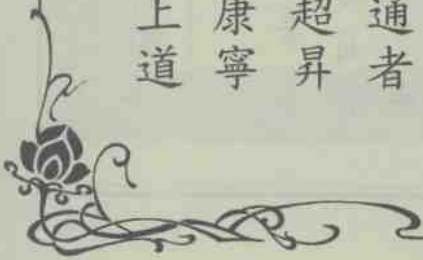 通者
超昇
康寧
上道